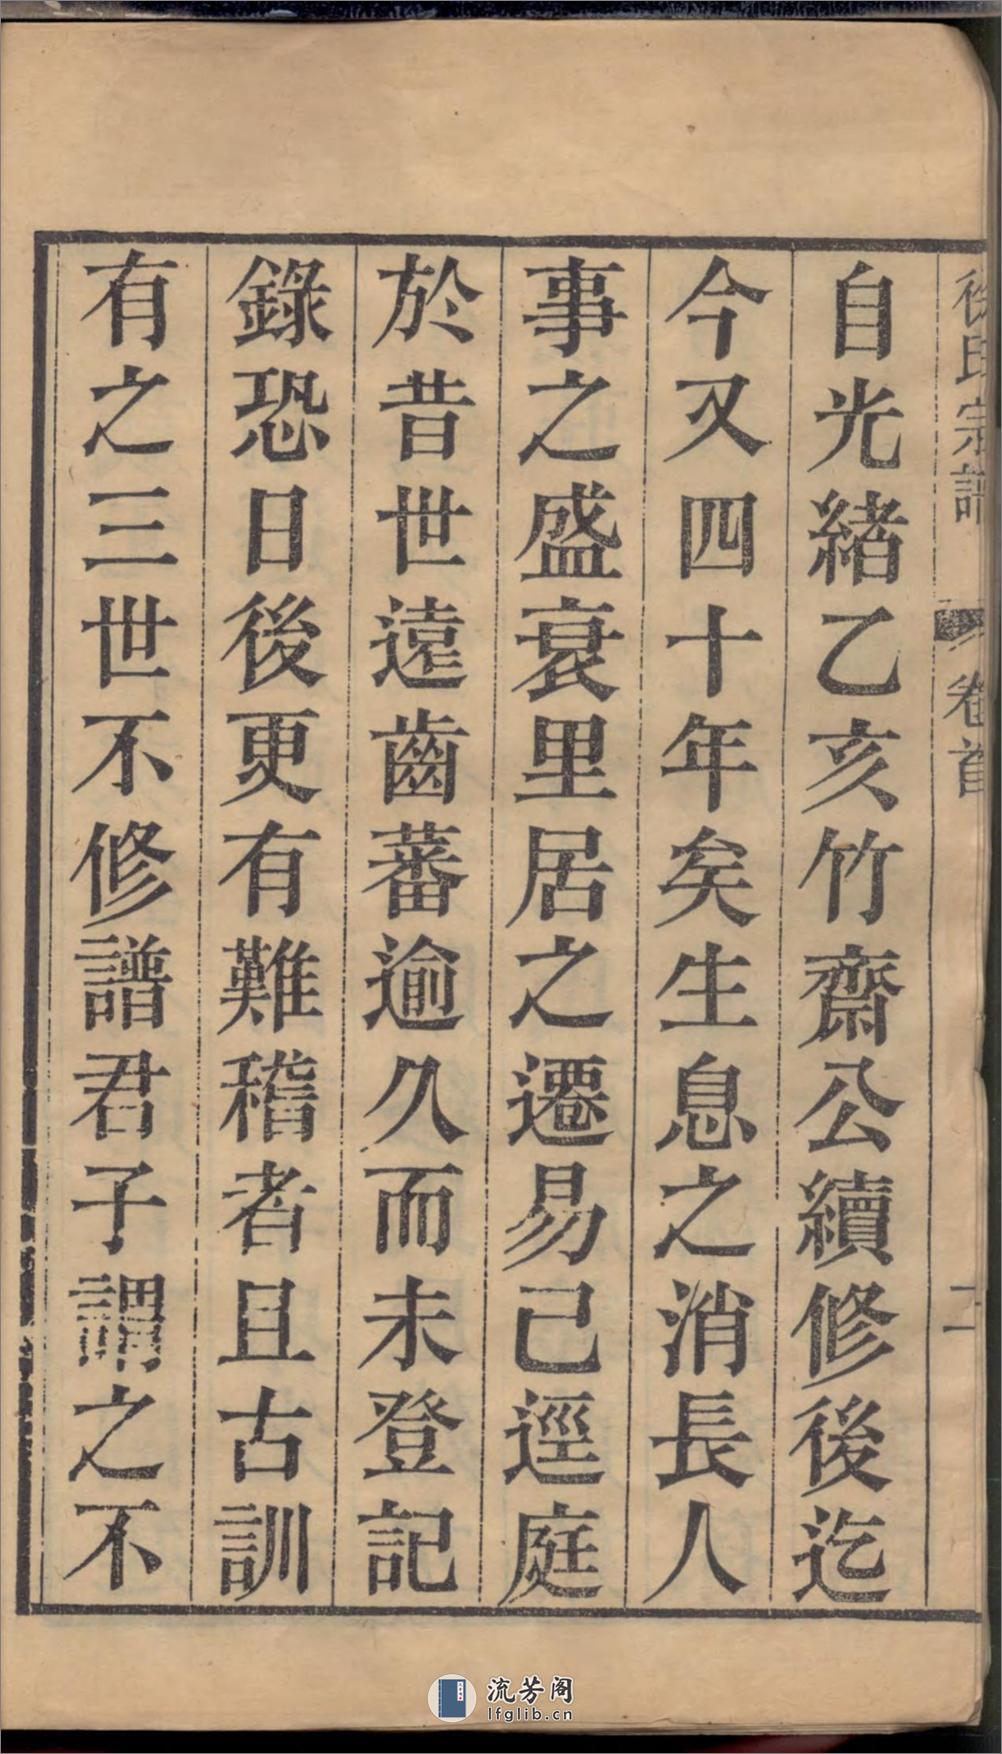 徐氏宗譜
卷首
二
自光緒乙亥竹齋公續修後迄
今又四十年矣生息之消長人
事之盛衰里居之遷易已逕庭
於昔世遠齒蕃逾久而未登記
錄恐日後更有難稽者且古訓
有之三世不修譜君子謂之不
流芳阁
lfglib.cn